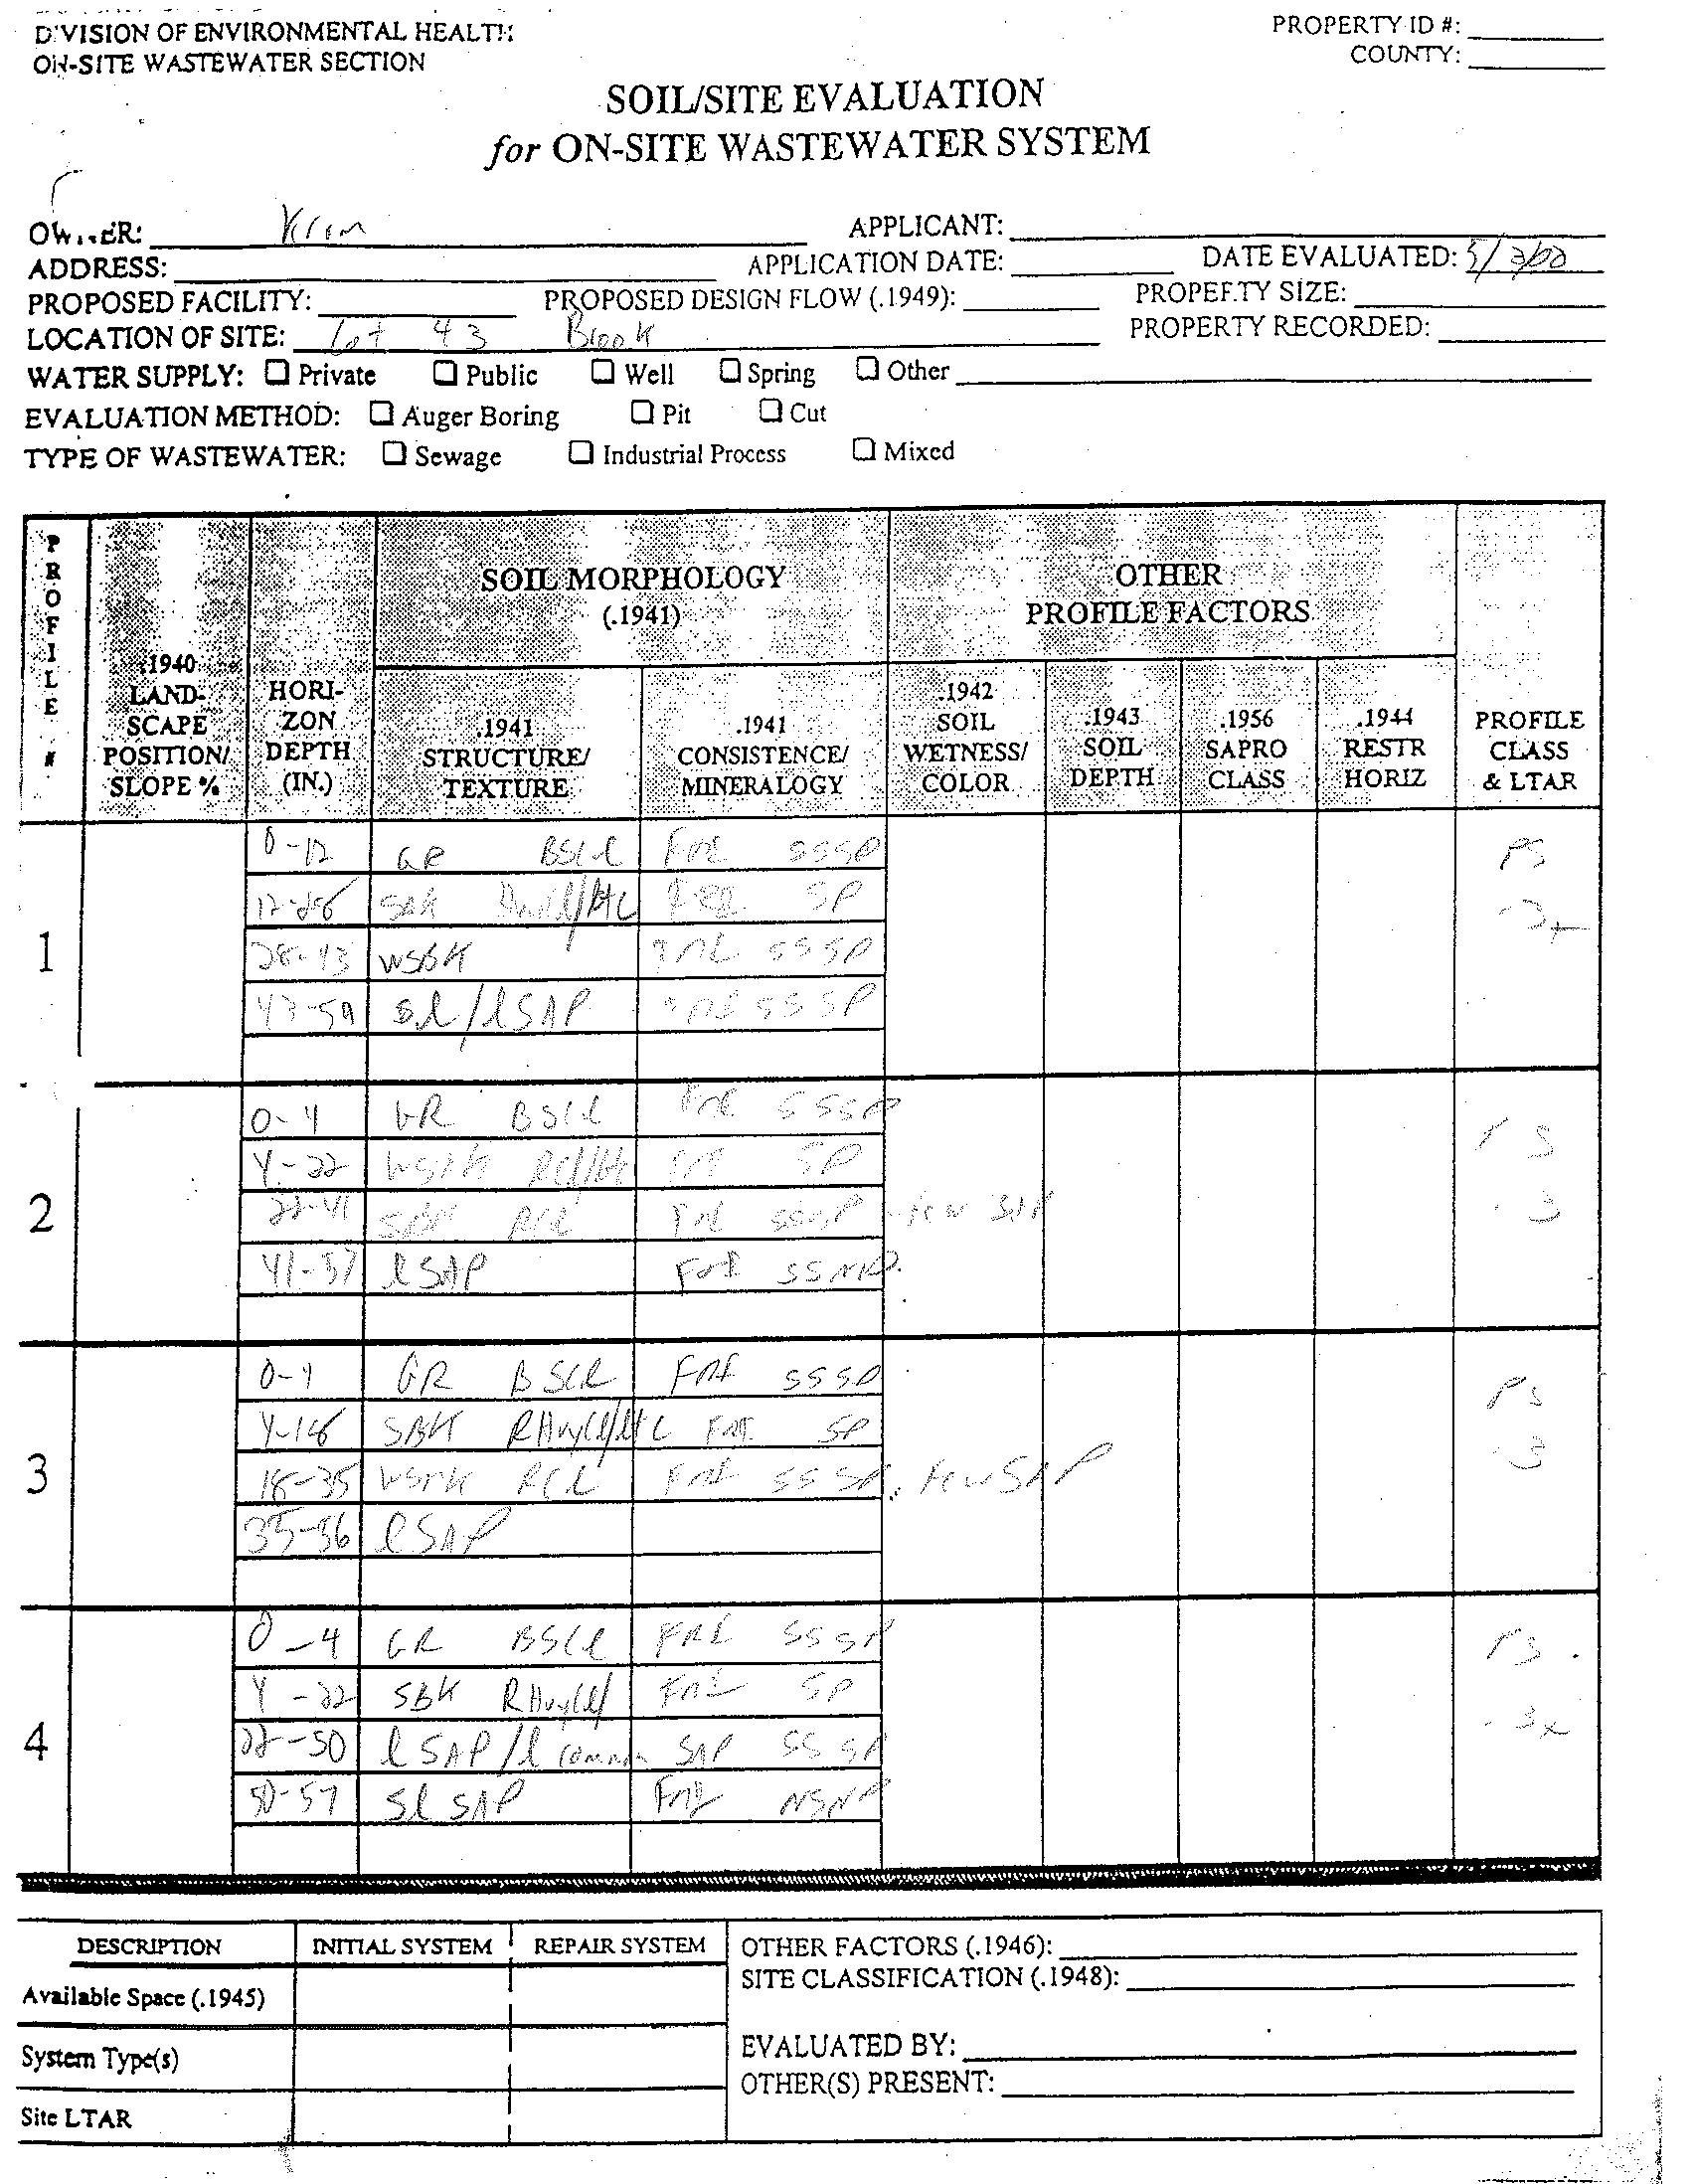 DIVISION OF ENVIRONMENTAL HEALTH
ON-SITE WASTEWATER SECTION
PROPERTY ID #:
COUNTY:
SOIL/SITE EVALUATION
for ON-SITE WASTEWATER SYSTEM
OWNER:
APPLICANT:
ADDRESS:
APPLICATION DATE:
DATE EVALUATED:
PROPOSED FACILITY:
PROPOSED DESIGN FLOW (.1949):
PROPERTY SIZE:
LOCATION OF SITE: Lot 43 Brook
PROPERTY RECORDED:
WATER SUPPLY: Private Public Well Spring Other
EVALUATION METHOD: Auger Boring Pit Cut
TYPE OF WASTEWATER: Sewage Industrial Process Mixed
PROFILE #
.1940 LAND-SCAPE POSITION/ SLOPE %
HORI-ZON DEPTH (IN.)
SOIL MORPHOLOGY (.1941)
.1941 STRUCTURE/ TEXTURE
.1941 CONSISTENCE/ MINERALOGY
OTHER PROFILE FACTORS
.1942 SOIL WETNESS/ COLOR
.1943 SOIL DEPTH
.1956 SAPRO CLASS
.1944 RESTR HORIZ
PROFILE CLASS & LTAR
1
0-12 GR BSCL SSSP PS
SBK SP
28-43 WSBK SSSP
SL/LSAP SSSP
2
0-4 GR BSCL SSSP
4-22 WSBK SP
22-41 SBK RCL few SAP
41-57 LSAP SSNP
3
0-4 GR BSCL SSSP PS
4-18 SBK SP .3
18-35 WSBK RCL SSSP few SAP
35-56 LSAP
4
0-4 GR BSCL SSSP
4-22 SBK SP
22-50 LSAP/L common SAP SSSP
50-57 SL SAP NSNP
DESCRIPTION INITIAL SYSTEM REPAIR SYSTEM
Available Space (.1945)
System Type(s)
Site LTAR
OTHER FACTORS (.1946):
SITE CLASSIFICATION (.1948):
EVALUATED BY:
OTHER(S) PRESENT: